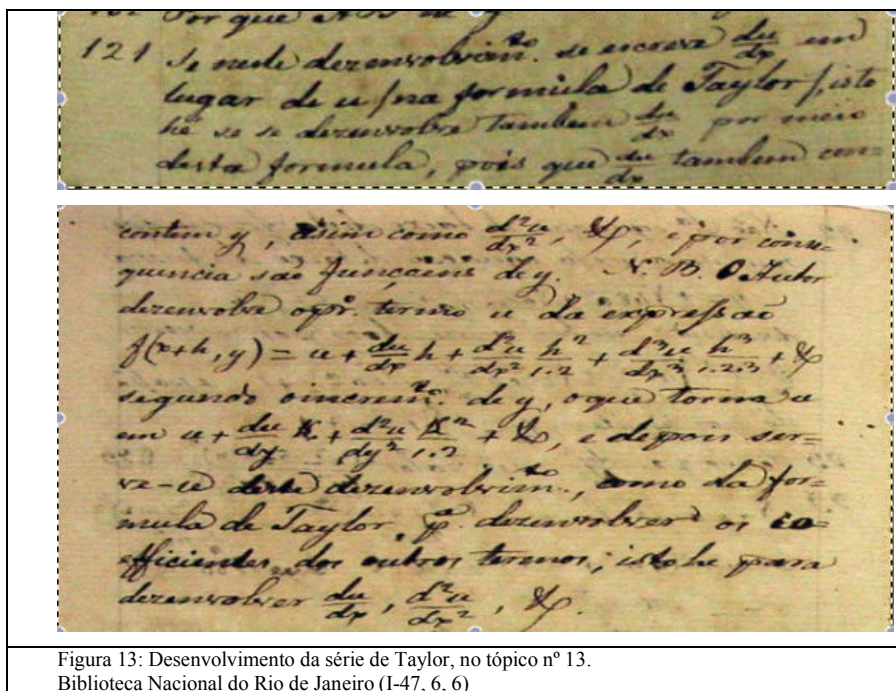 Por que
121 Se neste dezenvolvim.to se escreva du/dx em
lugar de u /na formula de Taylor/, isto
he se se dezenvolve tambem du/dx por meio
desta formula, pois que du/dx tambem con=
contem y, assim como d²u/dx², &, e por conse=
quencia são funçoens de y. N. B. O Autor
dezenvolve o pr.º termo u da expressaõ
f(x+h, y) = u + du/dx h + d²u/dx² h²/1.2 + d³u/dx³ h³/1.2.3 + &
segundo o increm.to de y, o que torna u
em u + du/dy k + d²u/dy² k²/1.2 + &, e depois ser=
ve-se deste dezenvolvim.to, como da for=
mula de Taylor, p.ª dezenvolver os co=
efficientes dos outros termos; isto he para
dezenvolver du/dx, d²u/dx², &.
Figura 13: Desenvolvimento da série de Taylor, no tópico nº 13.
Biblioteca Nacional do Rio de Janeiro (I-47, 6, 6)